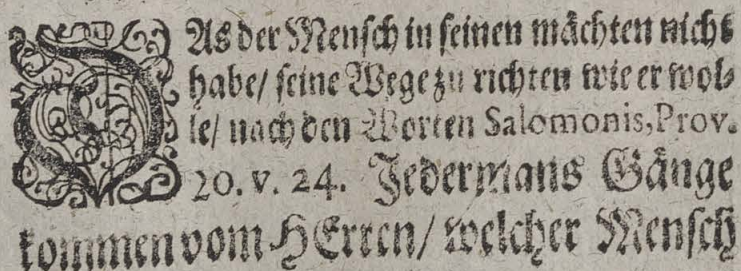 DAs der Mensch in seinen mächten nicht
habe/ seine Wege zu richten wie er wol-
le/ nach den Worten Salomonis, Prov.
20. v. 24. Jedermans Gänge
kommen vom HErren/ welcher Mensch